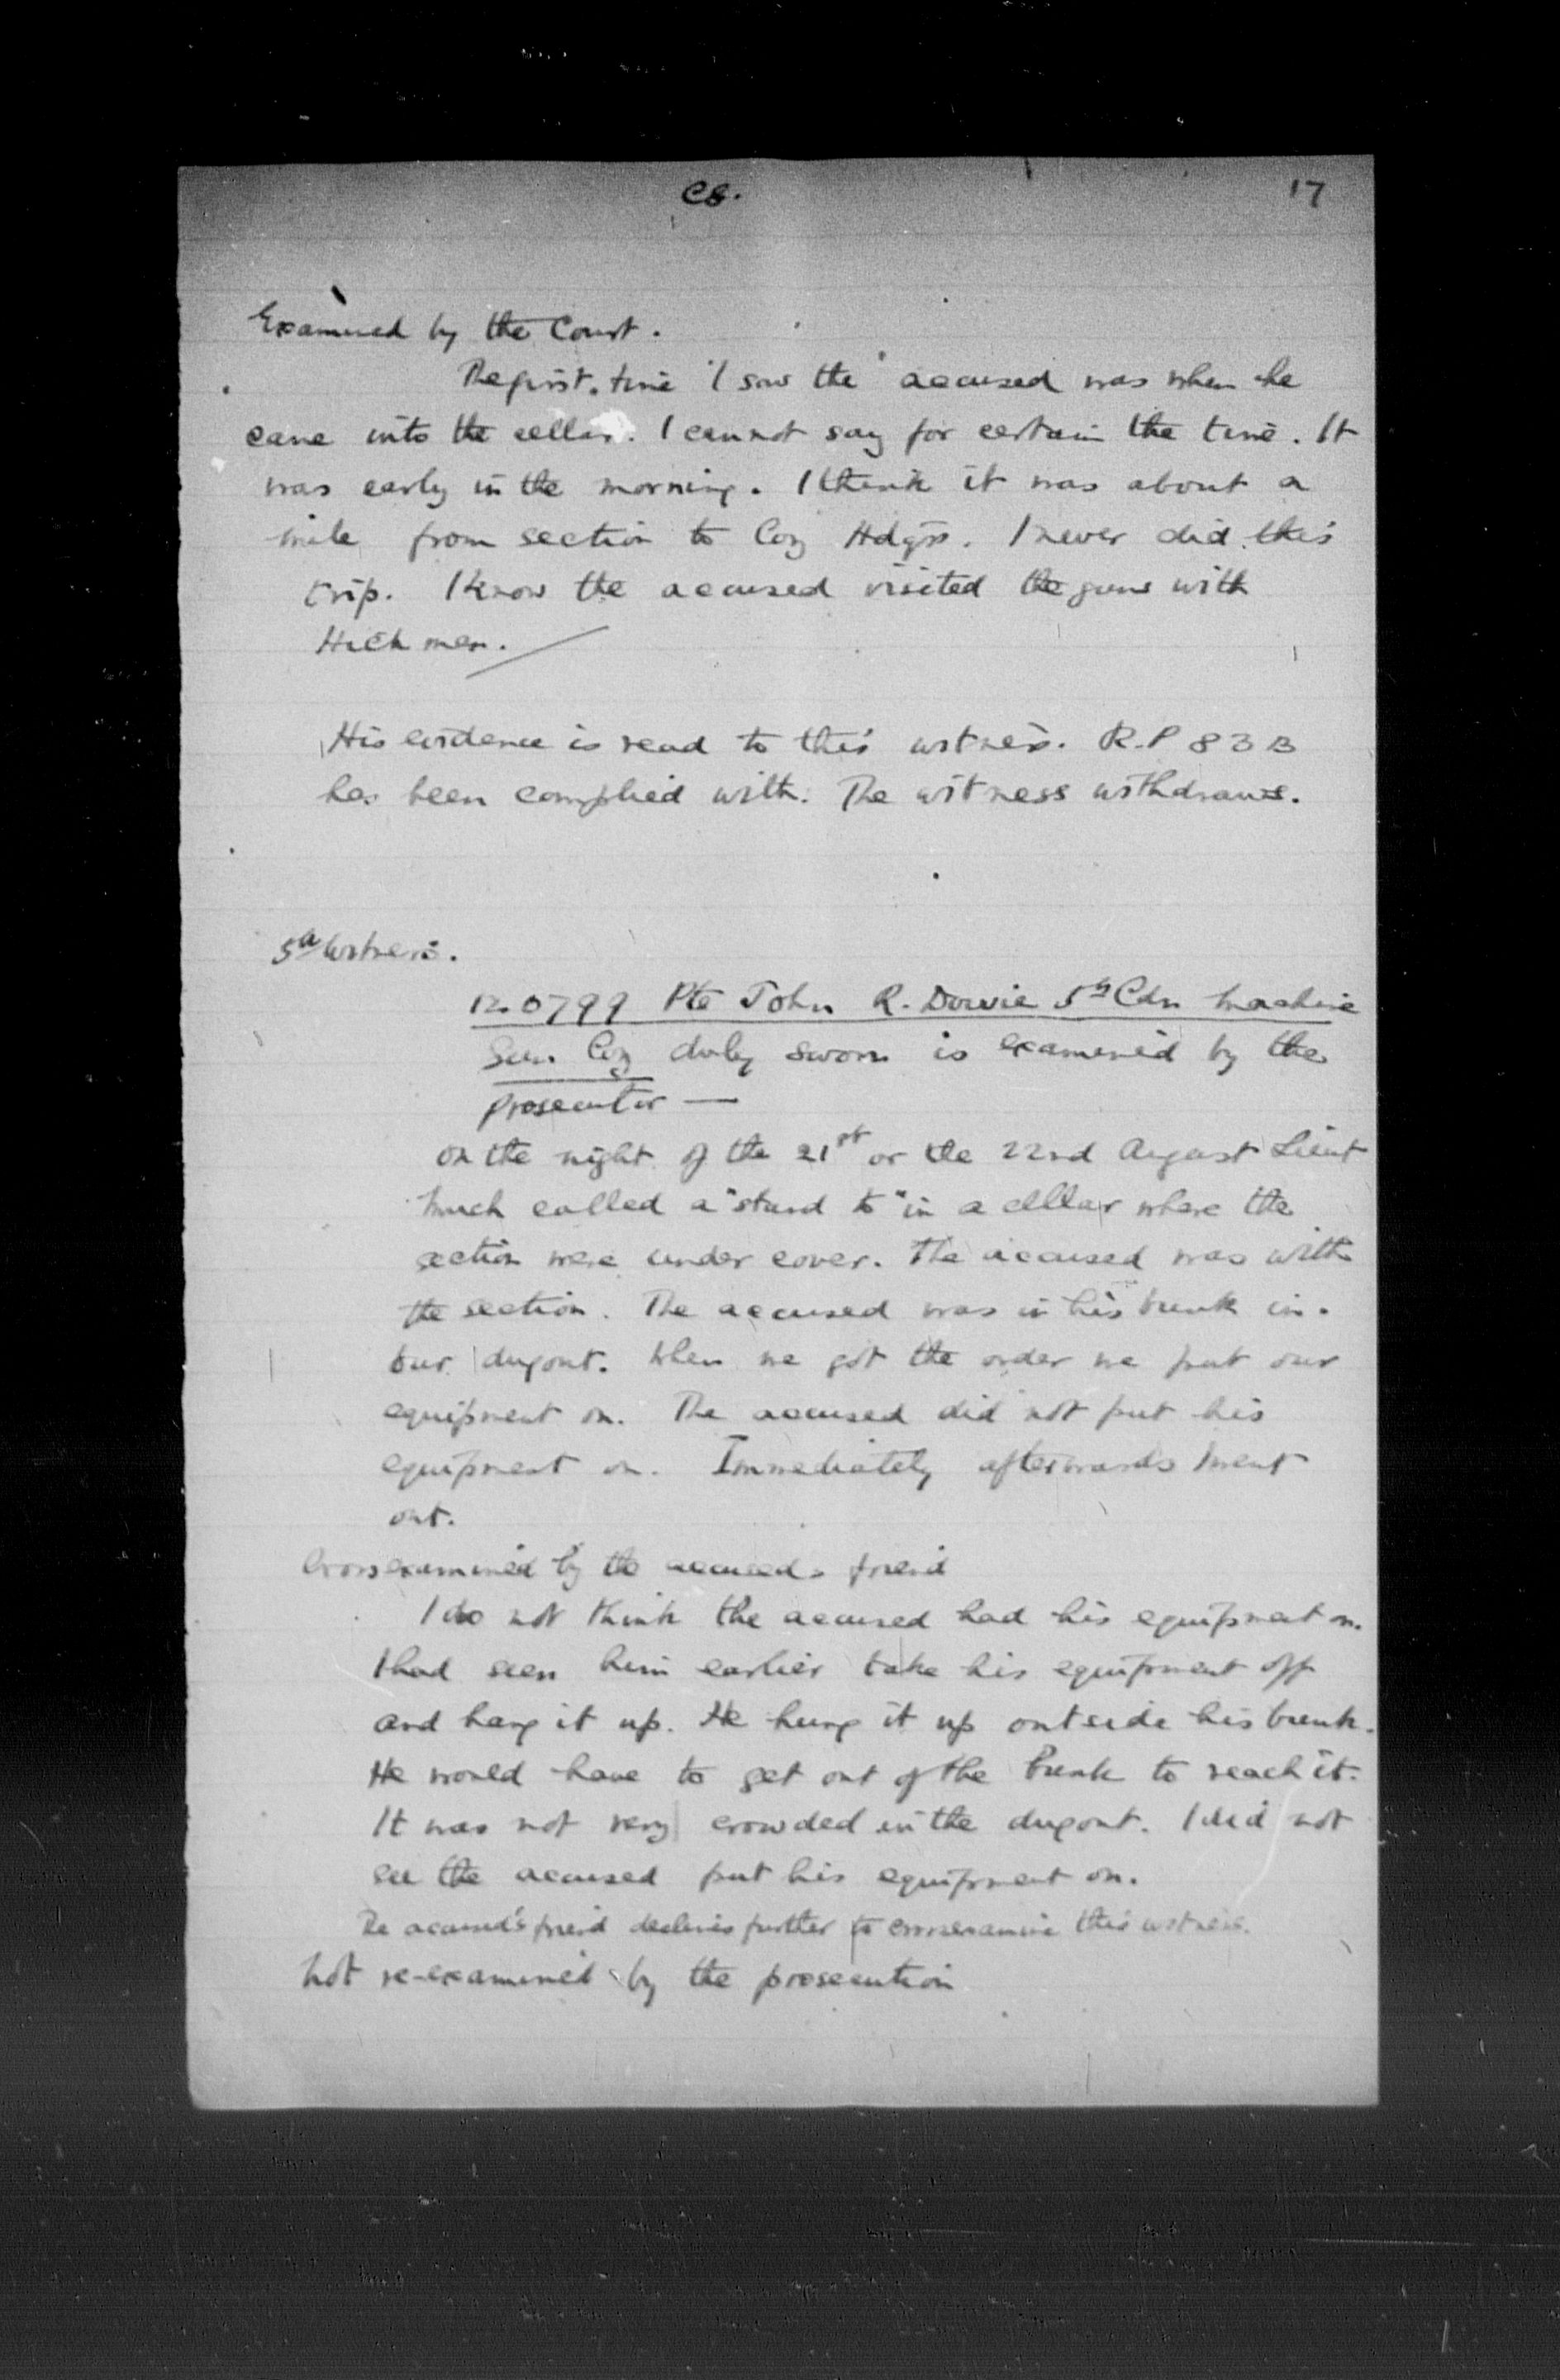 C8.
17
Examined by the Court.
The first time I saw the accused was when he
came into the cellar. I cannot say for certain the time. It
was early in the morning. I think it was about a
mile from section to Coy Hdqrs. I never did this
trip. I know the accused visited the guns with
Hickmen.
His evidence is read to this witness. R.P 83 B
has been complied with. The witness withdraws.
5th Witness.
120799 Pte John R. Dowie 5th Cdn Machine
Gun Coy duly sworn is examined by the
prosecutor —
On the night of the 21st or the 22nd August Lieut
called a "stand to" in a cellar where the
section were under cover. The accused was with
the section. The accused was in his bunk in
our dugout. When we got the order we put our
equipment on. The accused did not put his
equipment on. Immediately afterwards I went
out.
Cross examined by the accused's friend
I do not think the accused had his equipment on.
I had seen him earlier take his equipment off
and hang it up. He hung it up outside his bunk.
He would have to get out of the bunk to reach it.
It was not very crowded in the dugout. I did not
see the accused put his equipment on.
The accused's friend declines further to crossexamine this witness.
Not re-examined by the prosecution